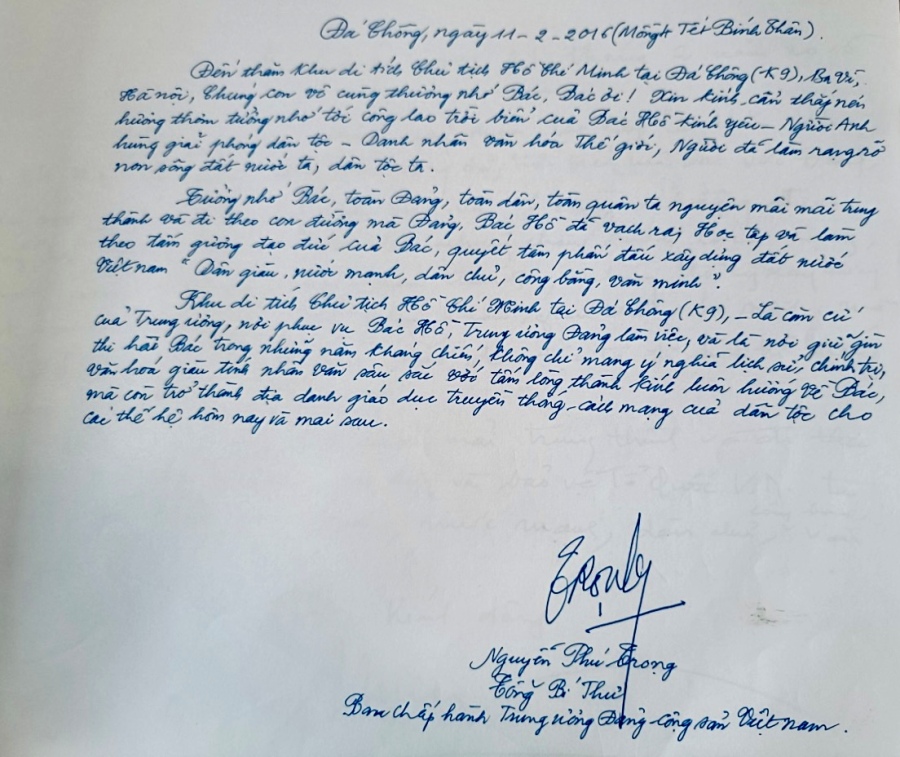 Đá Chông, ngày 11-2-2016 (Mồng 4 Tết Bính Thân).
Đến thăm Khu di tích Chủ tịch Hồ Chí Minh tại Đá Chông (K9), Ba Vì,
Hà Nội, Chúng con vô cùng thương nhớ Bác, Bác ơi! Xin kính cẩn thắp nén
hương thơm tưởng nhớ tới công lao trời biển của Bác Hồ kính yêu - Người Anh
hùng giải phóng dân tộc - Danh nhân văn hóa Thế giới, Người đã làm rạng rỡ
non sông đất nước ta, dân tộc ta.
Tưởng nhớ Bác, toàn Đảng, toàn dân, toàn quân ta nguyện mãi mãi trung
thành và đi theo con đường mà Đảng, Bác Hồ đã vạch ra; Học tập và làm
theo tấm gương đạo đức của Bác, quyết tâm phấn đấu xây dựng đất nước
Việt nam "Dân giàu, nước mạnh, dân chủ, công bằng, văn minh".
Khu di tích Chủ tịch Hồ Chí Minh tại Đá Chông (K9), - Là căn cứ
của Trung ương, nơi phục vụ Bác Hồ, Trung ương Đảng làm việc, và là nơi giữ gìn
thi hài Bác trong những năm kháng chiến, không chỉ mang ý nghĩa lịch sử, chính trị,
văn hoá giàu tính nhân văn sâu sắc với tấm lòng thành kính luôn hướng về Bác,
mà còn trở thành địa danh giáo dục truyền thống cách mạng của dân tộc cho
các thế hệ hôm nay và mai sau.
Trọng
Nguyễn Phú Trọng
Tổng Bí Thư
Ban chấp hành Trung ương Đảng cộng sản Việt nam.